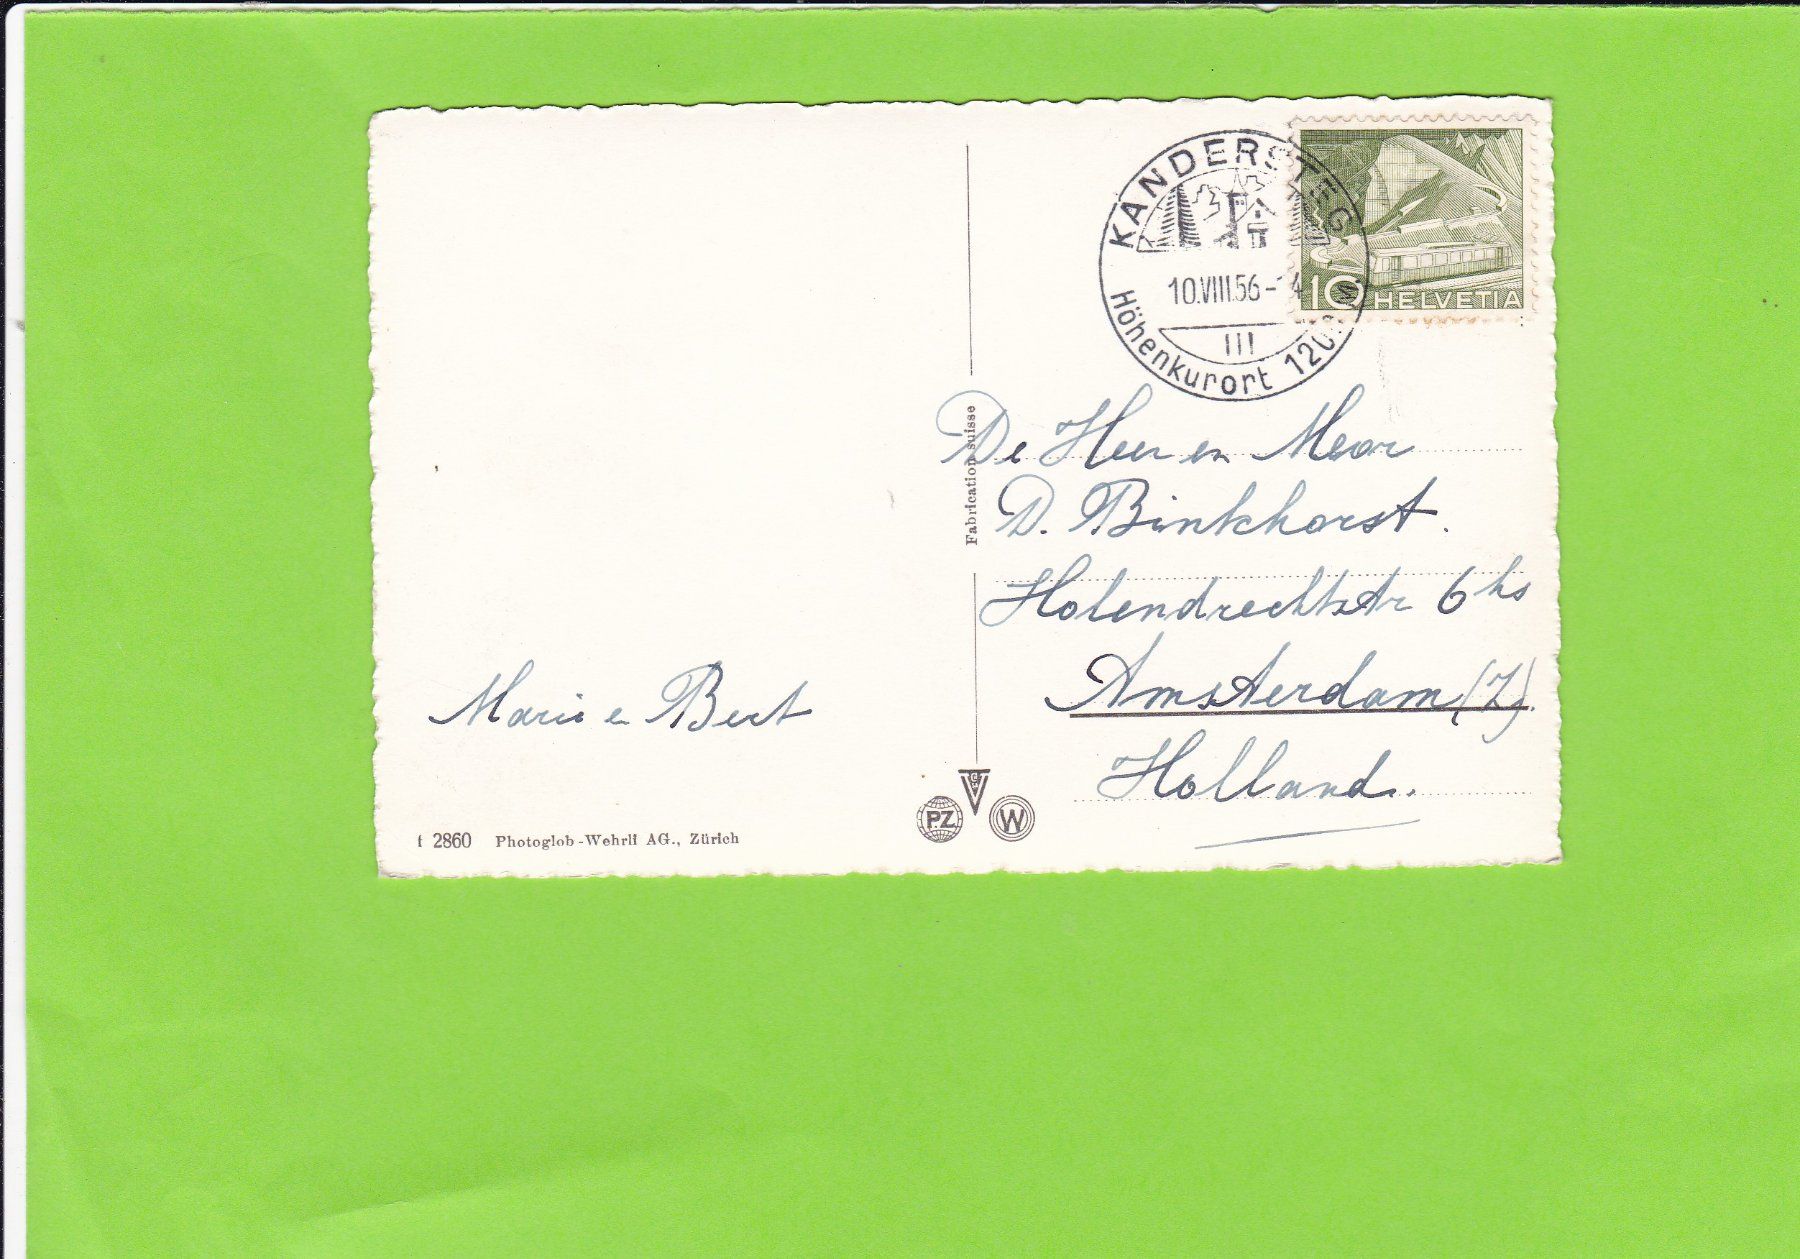 KANDERSTEG
10.VIII.56-14
III
Höhenkurort 1200 M
10 HELVETIA
Fabrication suisse
De Heer en Mevr
D. Binkhorst.
Holendrechtstr 6 hs
Amsterdam (Z).
Holland.
Marie en Bert
PZ
W
f 2860 Photoglob-Wehrli AG., Zürich